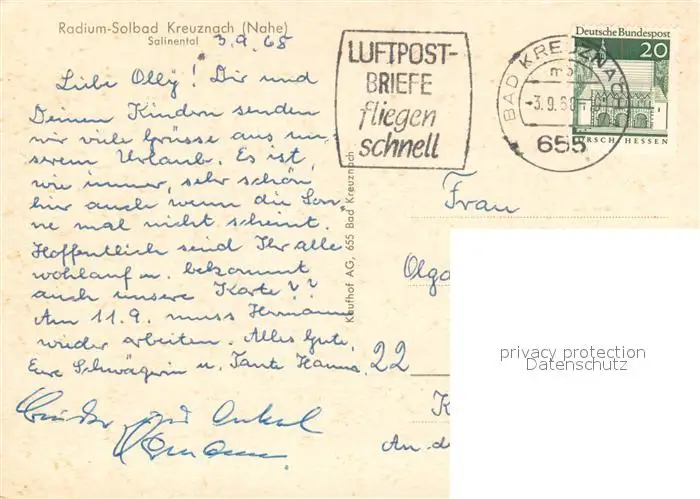 Radium-Solbad Kreuznach (Nahe)
Salinental
3.9.68
Liebe Olly! Dir und
Deinen Kindern senden
wir viele Grüsse aus un-
serem Urlaub. Es ist,
wie immer, sehr schön
hier auch wenn die Son-
ne mal nicht scheint.
Hoffentlich seid Ihr alle
wohlauf u. bekommt
auch unsere Karte??
Am 11.9. muss Hermann
wieder arbeiten. Alles Gute,
Eure Schwägerin u. Tante Hanna.
Bruder und Onkel
Hermann
Kaufhof AG, 655 Bad Kreuznach
LUFTPOST-
BRIEFE
fliegen
schnell
BAD KREUZNACH
-3.9.68
655
Deutsche Bundespost
20
HESSEN
Frau
Olga
22
K
An d
privacy protection
Datenschutz